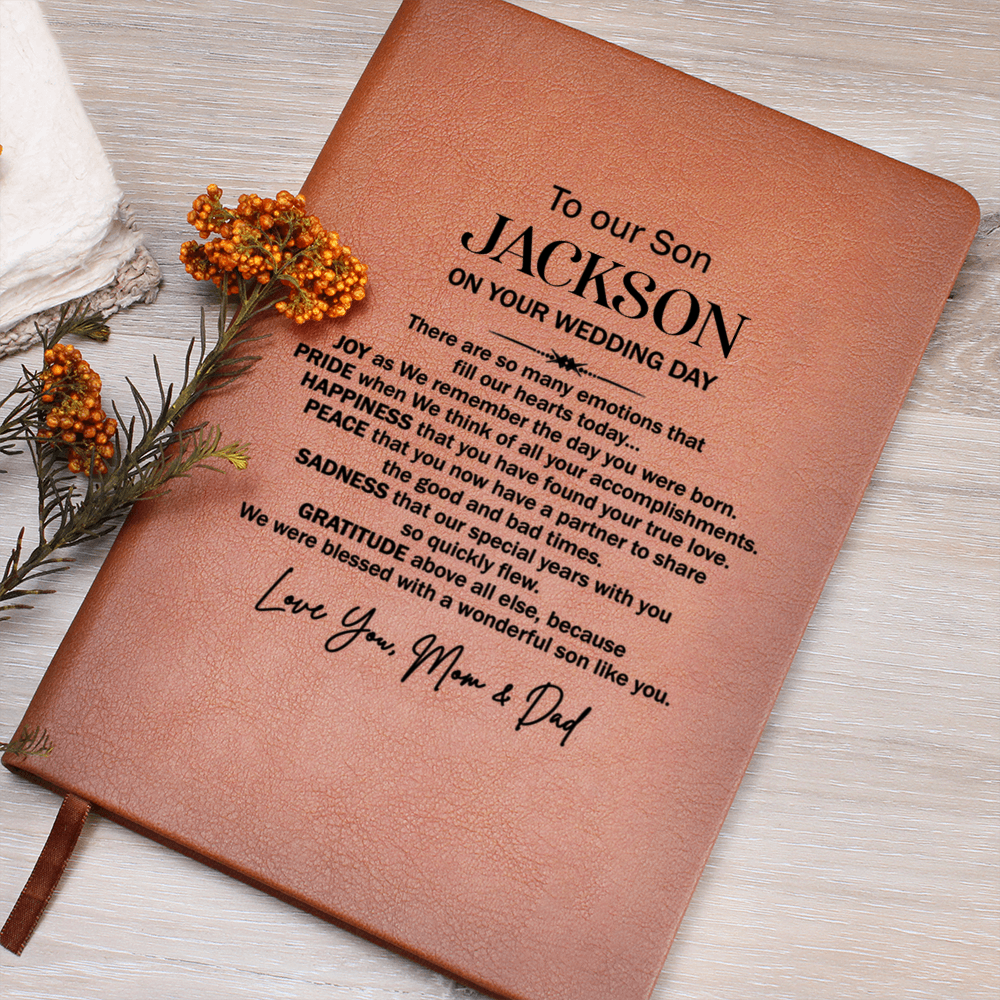 To our Son
JACKSON
ON YOUR WEDDING DAY
There are so many emotions that
fill our hearts today...
JOY as We remember the day you were born.
PRIDE when We think of all your accomplishments.
HAPPINESS that you have found your true love.
PEACE that you now have a partner to share
the good and bad times.
SADNESS that our special years with you
so quickly flew.
GRATITUDE above all else, because
We were blessed with a wonderful son like you.
Love You, Mom & Dad